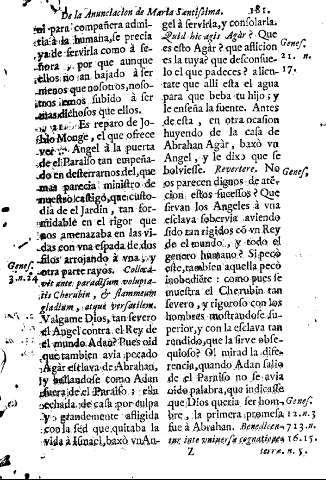 De la Anunciacion de Maria Santissima. 181.
mi para compañera admi-
tiria à la humana, se precia
ya de servirla como à se-
ñora, por que aunque
ellos no an bajado à ser
menos que nosotros, noso-
tros iemos subido à ser
mas dichosos que ellos.
21. Es reparo de Jo-
bio Monge, el que ofrece
ver Angel à la puerta
de el Paraiso tan empeña-
do en desterrarnos del, que
mas parecia ministro de
nuestro castigo, que custo-
dia de el Jardin, tan for-
midable en el rigor que
nos amenazaba en las vi-
das con vna espada de dos
filos arrojando à vna, y
otra parte rayos. Colloca-
vit ante paradisum volupta-
tis Cherubin, & flammeum
gladium, atque versatilem.
Valgame Dios, tan severo
el Angel contra el Rey de
el mundo Adan? Pues oid
que tambien avia pecado
Agàr esclava de Abrahan,
y hallandose como Adan
fuera de el Paraiso; ella
echada de casa por culpa
y grandemente afligida
con la sed que quitaba la
vida à Ismael, baxò vn An-
Genes.
3. n. 24
gel à servirla, y consolarla.
Quid hic agis Agàr? Que
es esto Agàr? que afliccion
es la tuya? que desconsue-
lo el que padeces? alien-
tate que alli esta el agua
para que beba tu hijo; y
le enseña la fuente. Antes
de esta, en otra ocasion
huyendo de la casa de
Abrahan Agàr, baxò vn
Angel, y le dixo que se
bolviesse. Revertere. No
os parecen dignos de atē-
cion estos sucessos? Que
sirvan los Angeles à vna
esclava sobervia aviendo
sido tan rigidos cō vn Rey
de el mundo, y todo el
genero humano? Si pecò
este, tambien aquella pecò
inobediēte: como pues se
muestra el Cherubin tan
severo, y rigoroso con los
hombres mostrandose su-
perior, y con la esclava tan
rendido, que la sirve obse-
quioso? O! mirad la dife-
rencia, quando Adan salio
de el Paraiso no se avia
oido palabra, que indicasse
que Dios queria ser hom-
bre, la primera promesa
fue à Abrahan. Benedicen-
tur inte vniversa cognationes
Genes.
21. n.
17.
Genes.
Genes.
12. n. 3
7 13. n.
16. 15.
Z
terræ. n. 5.